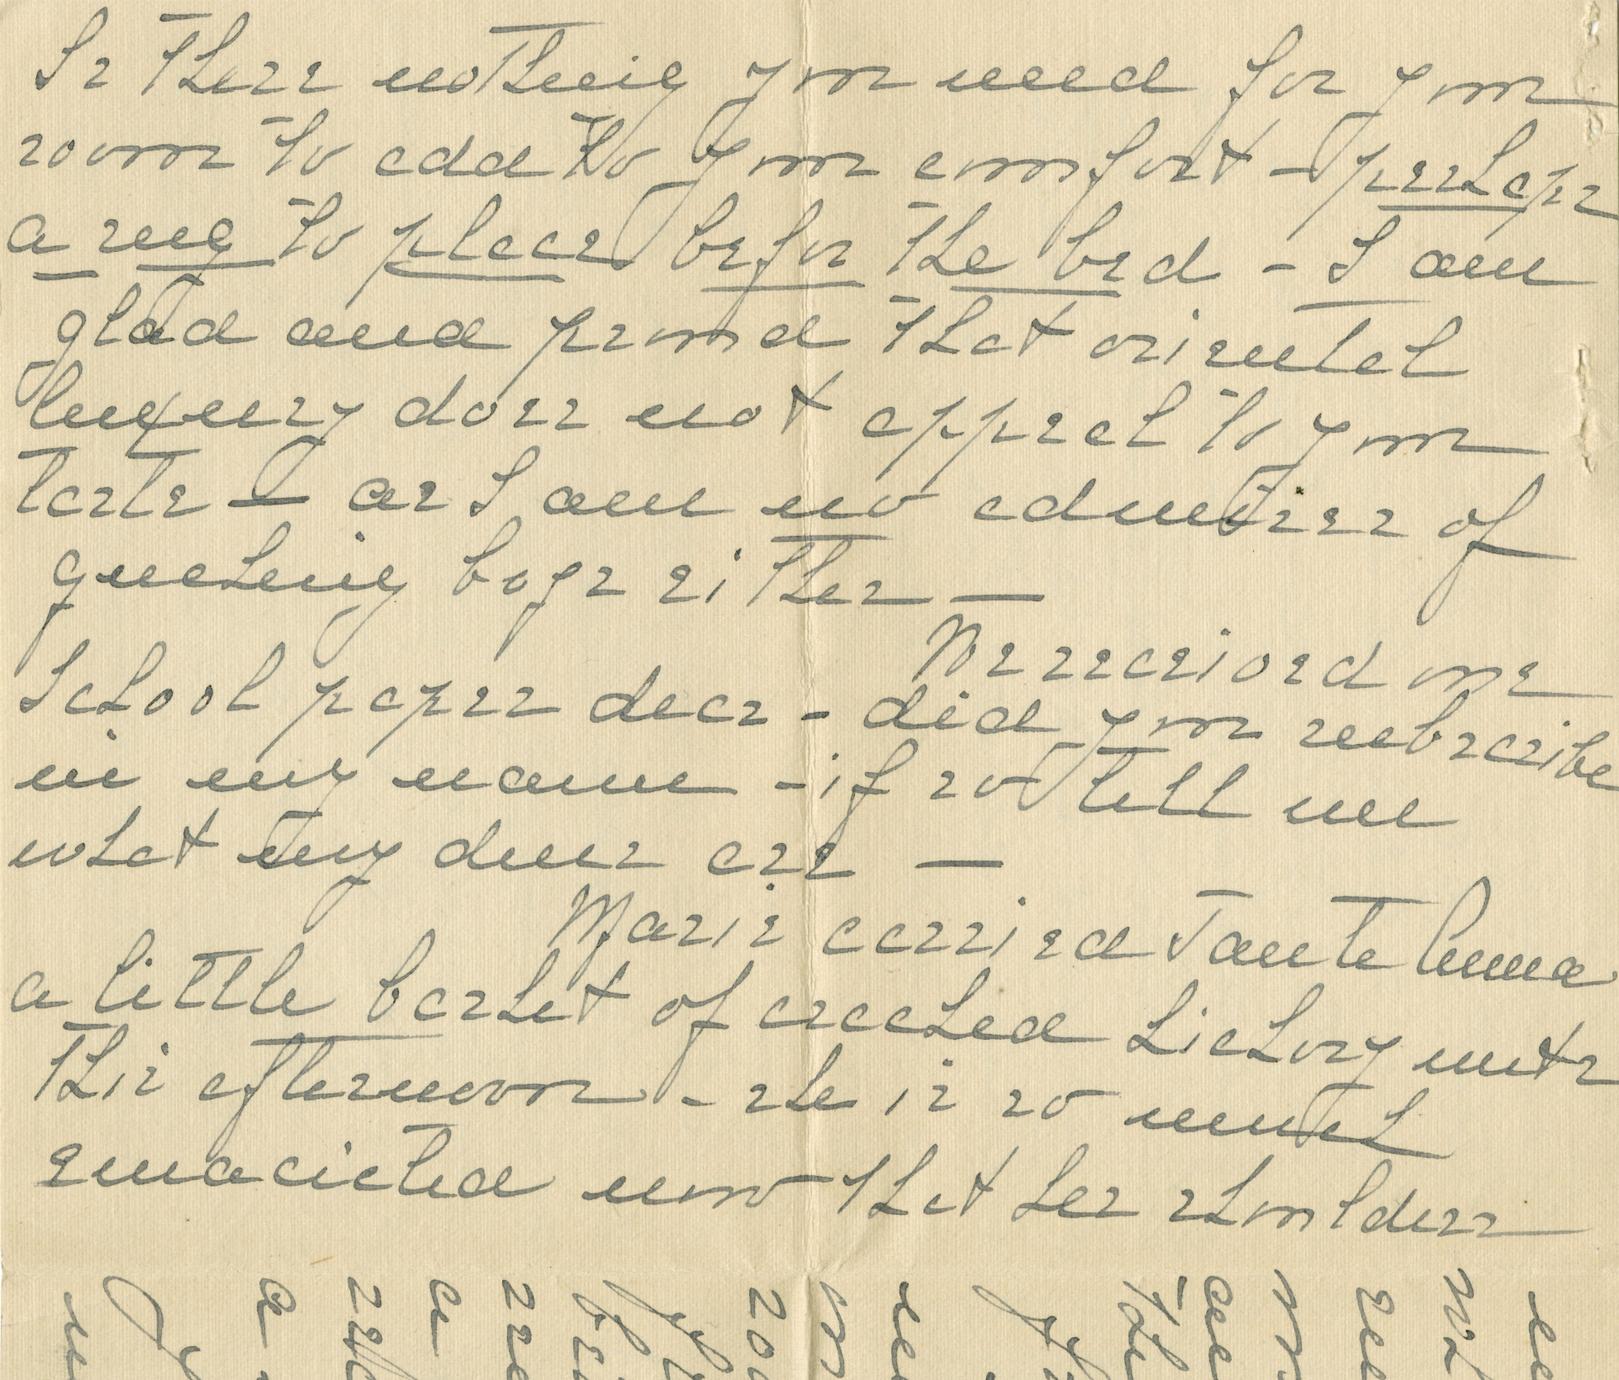 Is there nothing you need for your
room to add to your comfort - perhaps
a rug to place befor the bed - I am
glad and proud that oriental
luxury does not appeal to your
taste — as I am no admirer of
gushing boys either —
We received one
School paper dear - did you subscribe
in my name - if so tell me
what my dues are —
Marie carried Tante Emma
a little basket of cracked hickory nuts
this afternoon - she is so much
emaciated now that her shoulders